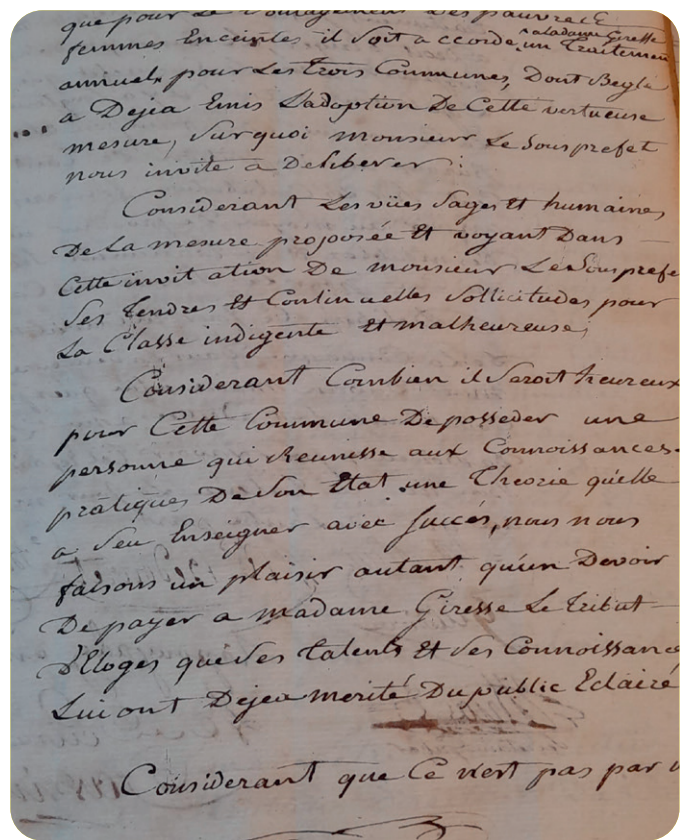 que pour le soulagement des pauvres
a madame Giresse
femmes Enceintes il soit accordé un Traitement
annuel pour Les trois Communes, Dont Begle
a Deja Emis L'adoption De Cette vertueuse
mesure, surquoi monsieur Le Sousprefet
nous invite a Deliberer :
Considerant Les vües sages Et humaines
De La mesure proposée Et voyant Dans
Cette invitation De monsieur Le Sousprefe
ses tendres Et Continuelles sollicitudes pour
La Classe indigente Et malheureuse ;
Considerant Combien il seroit heureux
pour Cette Commune De posseder une
personne qui Reunisse aux Connoissances
pratiques De son Etat une Theorie qu'elle
a seu Enseigner avec succès, nous nous
faisons un plaisir autant qu'un Devoir
De payer a madame Giresse Le tribut
D'Eloges que ses talents Et ses Connoissance
Lui ont Dejea merité Du public Eclairé
Considerant que Ce n'est pas par